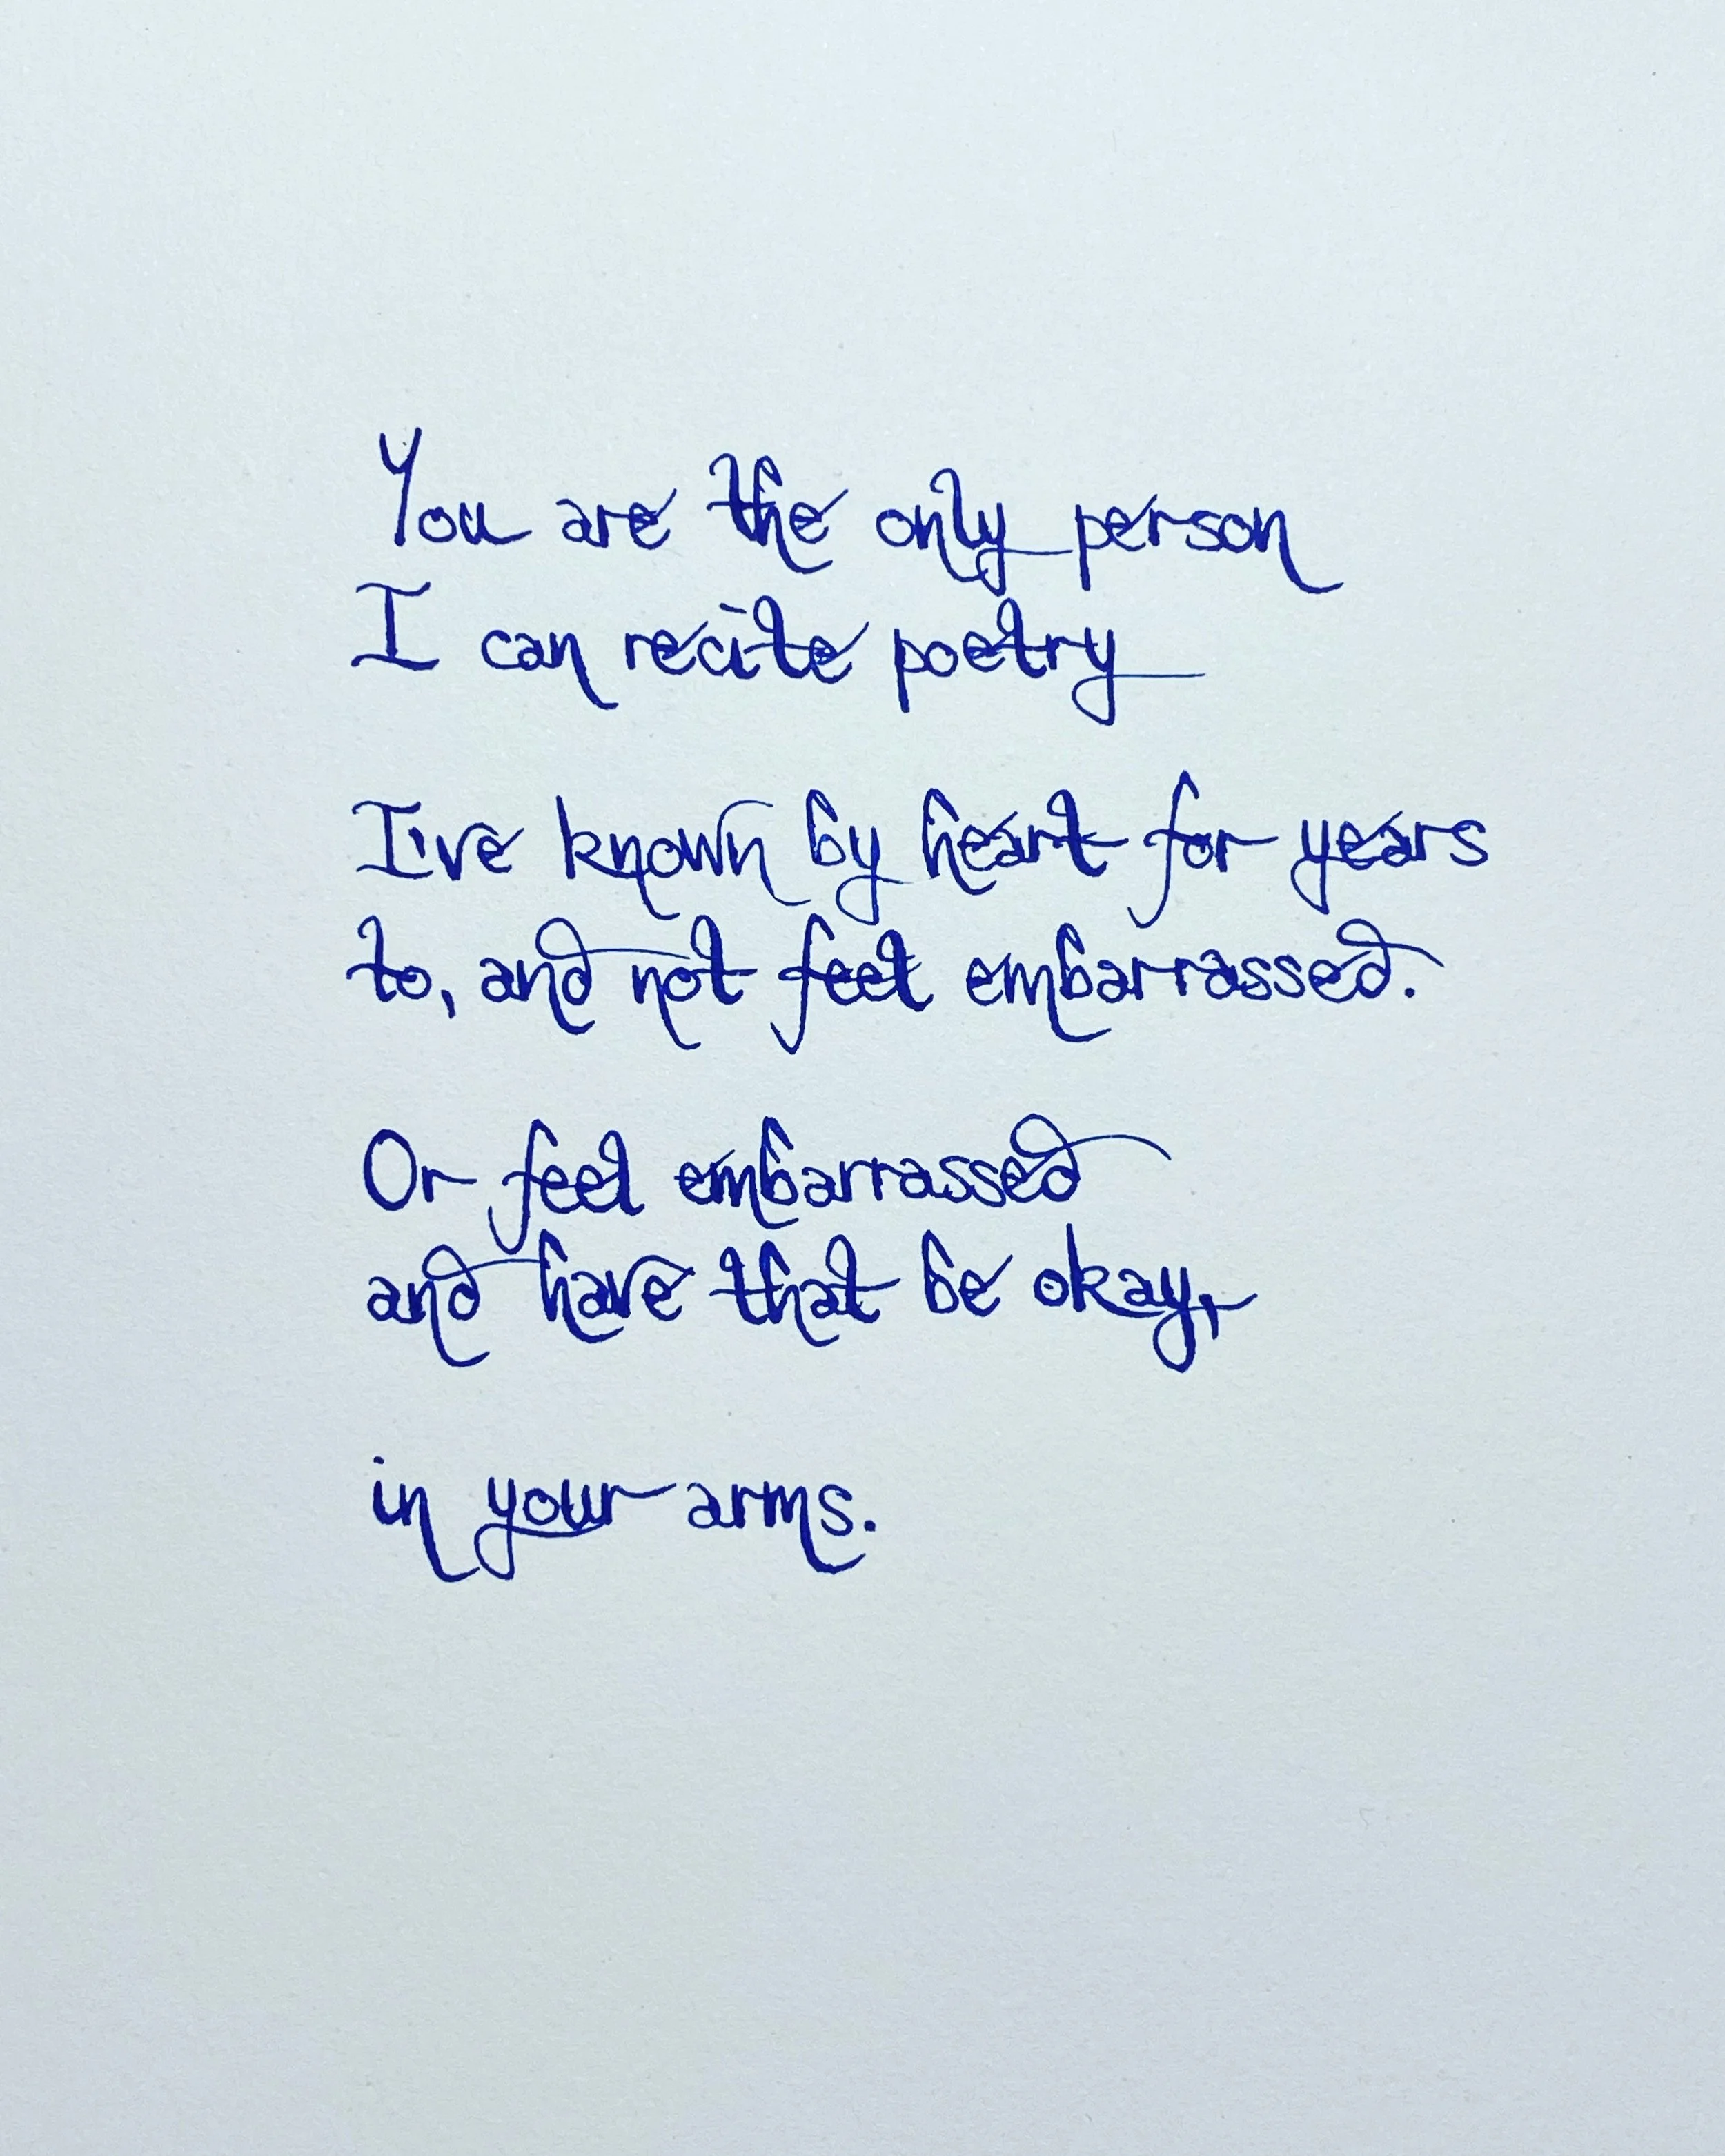 You are the only person
I can recite poetry
I've known by heart for years
to, and not feel embarrassed.
Or feel embarrassed
and have that be okay,
in your arms.